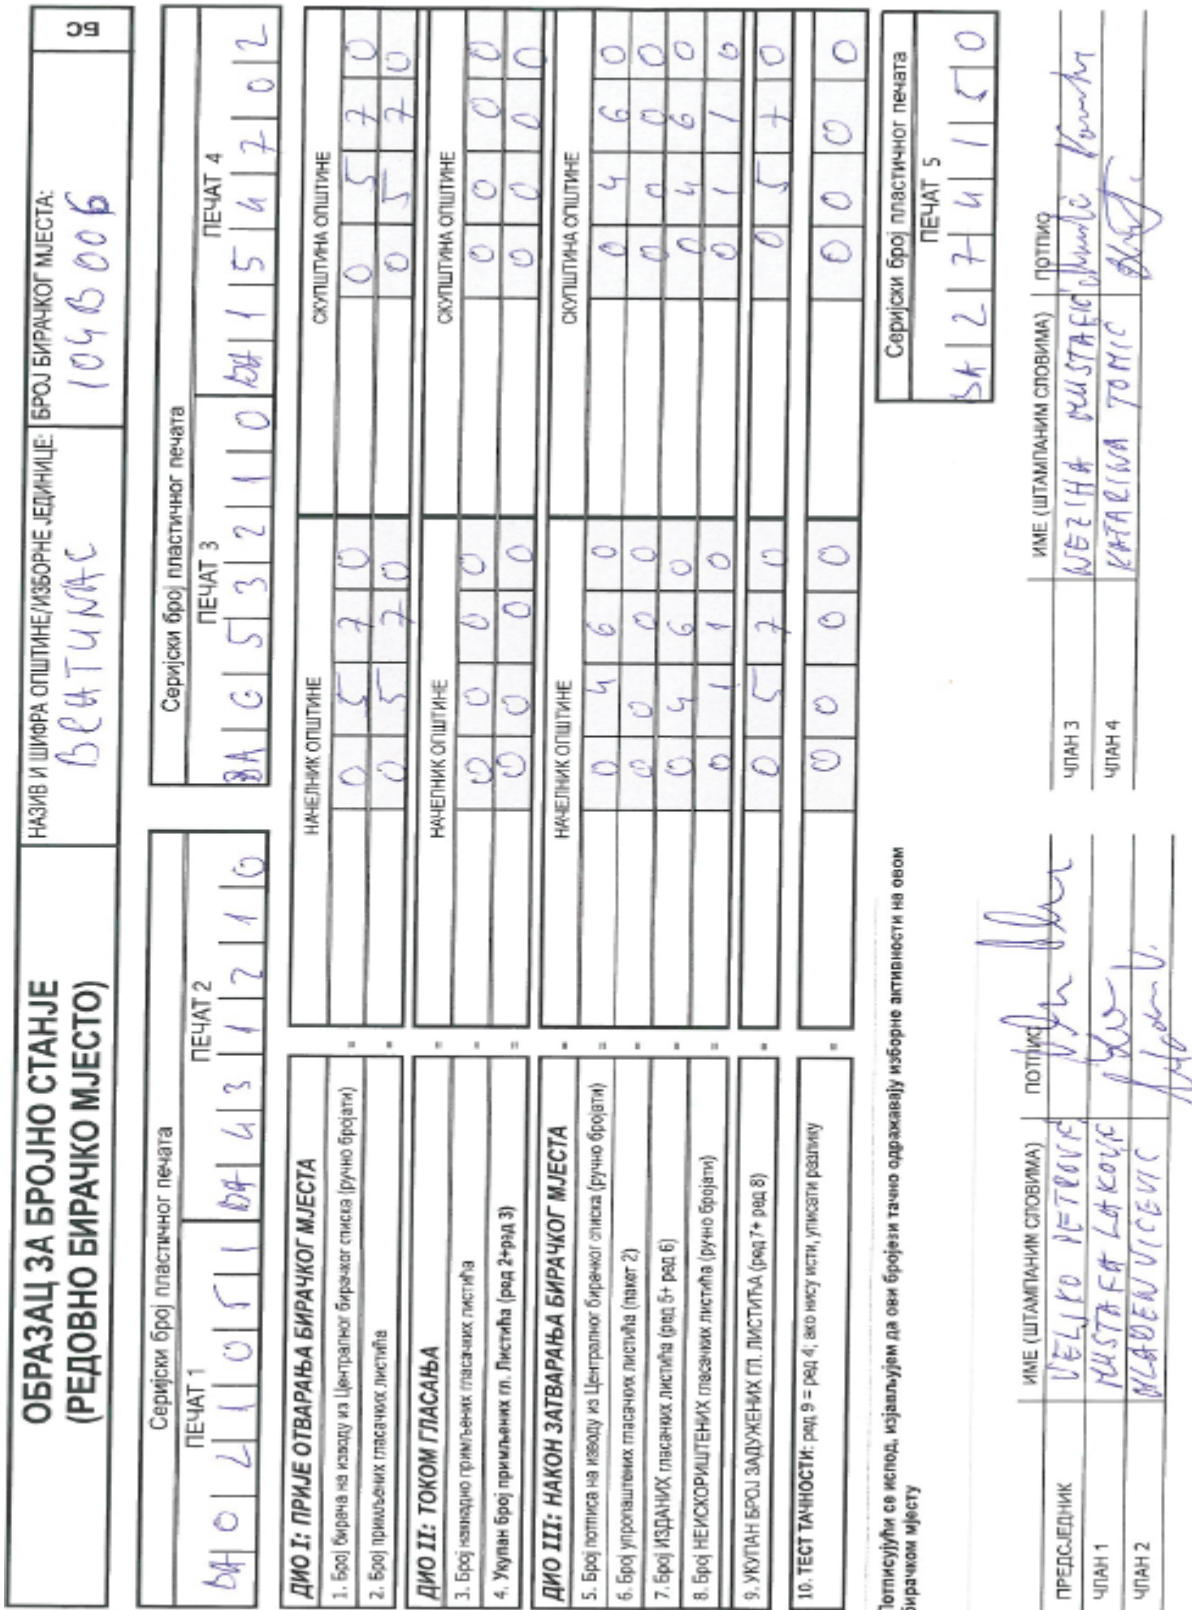 ОБРАЗАЦ ЗА БРОЈНО СТАЊЕ
(РЕДОВНО БИРАЧКО МЈЕСТО)
НАЗИВ И ШИФРА ОПШТИНЕ/ИЗБОРНЕ ЈЕДИНИЦЕ:
БРОЈ БИРАЧКОГ МЈЕСТА:
104B006
БС
Серијски број пластичног печата
ПЕЧАТ 1
ПЕЧАТ 2
BA 4 3 1 2 1 0
Серијски број пластичног печата
ПЕЧАТ 3
ПЕЧАТ 4
BA 1 5 4 7 0 2
ДИО I: ПРИЈЕ ОТВАРАЊА БИРАЧКОГ МЈЕСТА
НАЧЕЛНИК ОПШТИНЕ
СКУПШТИНА ОПШТИНЕ
1. Број бирача на изводу из Централног бирачког списка (ручно бројати) = 0 5 7 0 0 5 7 0
2. Број примљених гласачких листића = 0 5 7 0 0 5 7 0
ДИО II: ТОКОМ ГЛАСАЊА
НАЧЕЛНИК ОПШТИНЕ
СКУПШТИНА ОПШТИНЕ
3. Број накнадно примљених гласачких листића = 0 0 0 0 0 0 0 0
4. Укупан број примљених гл. Листића (ред 2+ред 3) = 0 0 0 0 0 0 0 0
ДИО III: НАКОН ЗАТВАРАЊА БИРАЧКОГ МЈЕСТА
НАЧЕЛНИК ОПШТИНЕ
СКУПШТИНА ОПШТИНЕ
5. Број потписа на изводу из Централног бирачког списка (ручно бројати) = 0 4 6 0 0 4 6 0
6. Број упропаштених гласачких листића (пакет 2) = 0 0 0 0 0 0 0 0
7. Број ИЗДАНИХ гласачких листића (ред 5+ ред 6) = 0 4 6 0 0 4 6 0
8. Број НЕИСКОРИШТЕНИХ гласачких листића (ручно бројати) = 0 1 1 0 0 1 1 0
9. УКУПАН БРОЈ ЗАДУЖЕНИХ ГЛ. ЛИСТИЋА (ред 7+ ред 8) = 0 5 7 0 0 5 7 0
10. ТЕСТ ТАЧНОСТИ: ред 9 = ред 4; ако нису исти, уписати разлику = 0 0 0 0 0 0 0 0
Потписујући се испод, изјављујем да ови бројеви тачно одражавају изборне активности на овом
бирачком мјесту
Серијски број пластичног печата
ПЕЧАТ 5
BA 2 7 4 1 5 0
ИМЕ (ШТАМПАНИМ СЛОВИМА) ПОТПИС
ПРЕДСЈЕДНИК VELJKO PETROVIĆ
ЧЛАН 1 MUSTAFA
ЧЛАН 2 MLADEN VICEVIC
ИМЕ (ШТАМПАНИМ СЛОВИМА) ПОТПИС
ЧЛАН 3 NEZIHA MUSTAFIĆ
ЧЛАН 4 KATARINA TOMIC